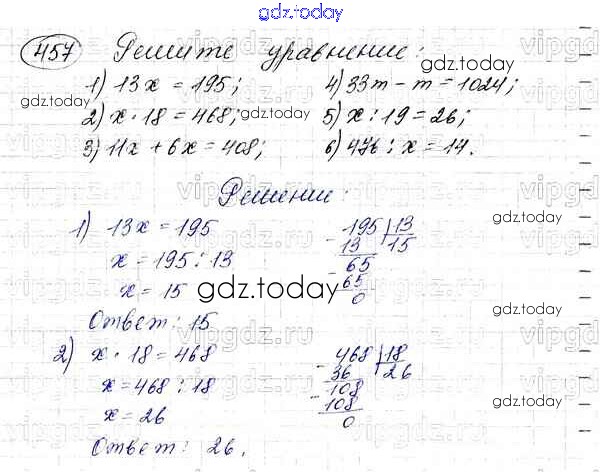 gdz.today
457 Решите уравнение:
1) 13x = 195; 4) 33m - m = 1024;
2) x · 18 = 468; 5) x : 19 = 26;
3) 11x + 6x = 408; 6) 476 : x = 14.
Решение:
1) 13x = 195
x = 195 : 13
x = 15
195 | 13
- 13 15
- 65
65
0
Ответ: 15
2) x · 18 = 468
x = 468 : 18
x = 26
- 468 | 18
36 26
- 108
108
0
Ответ: 26.
gdz.today
gdz.today
gdz.today
gdz.today
gdz.today
gdz.today
gdz.today
gdz.today